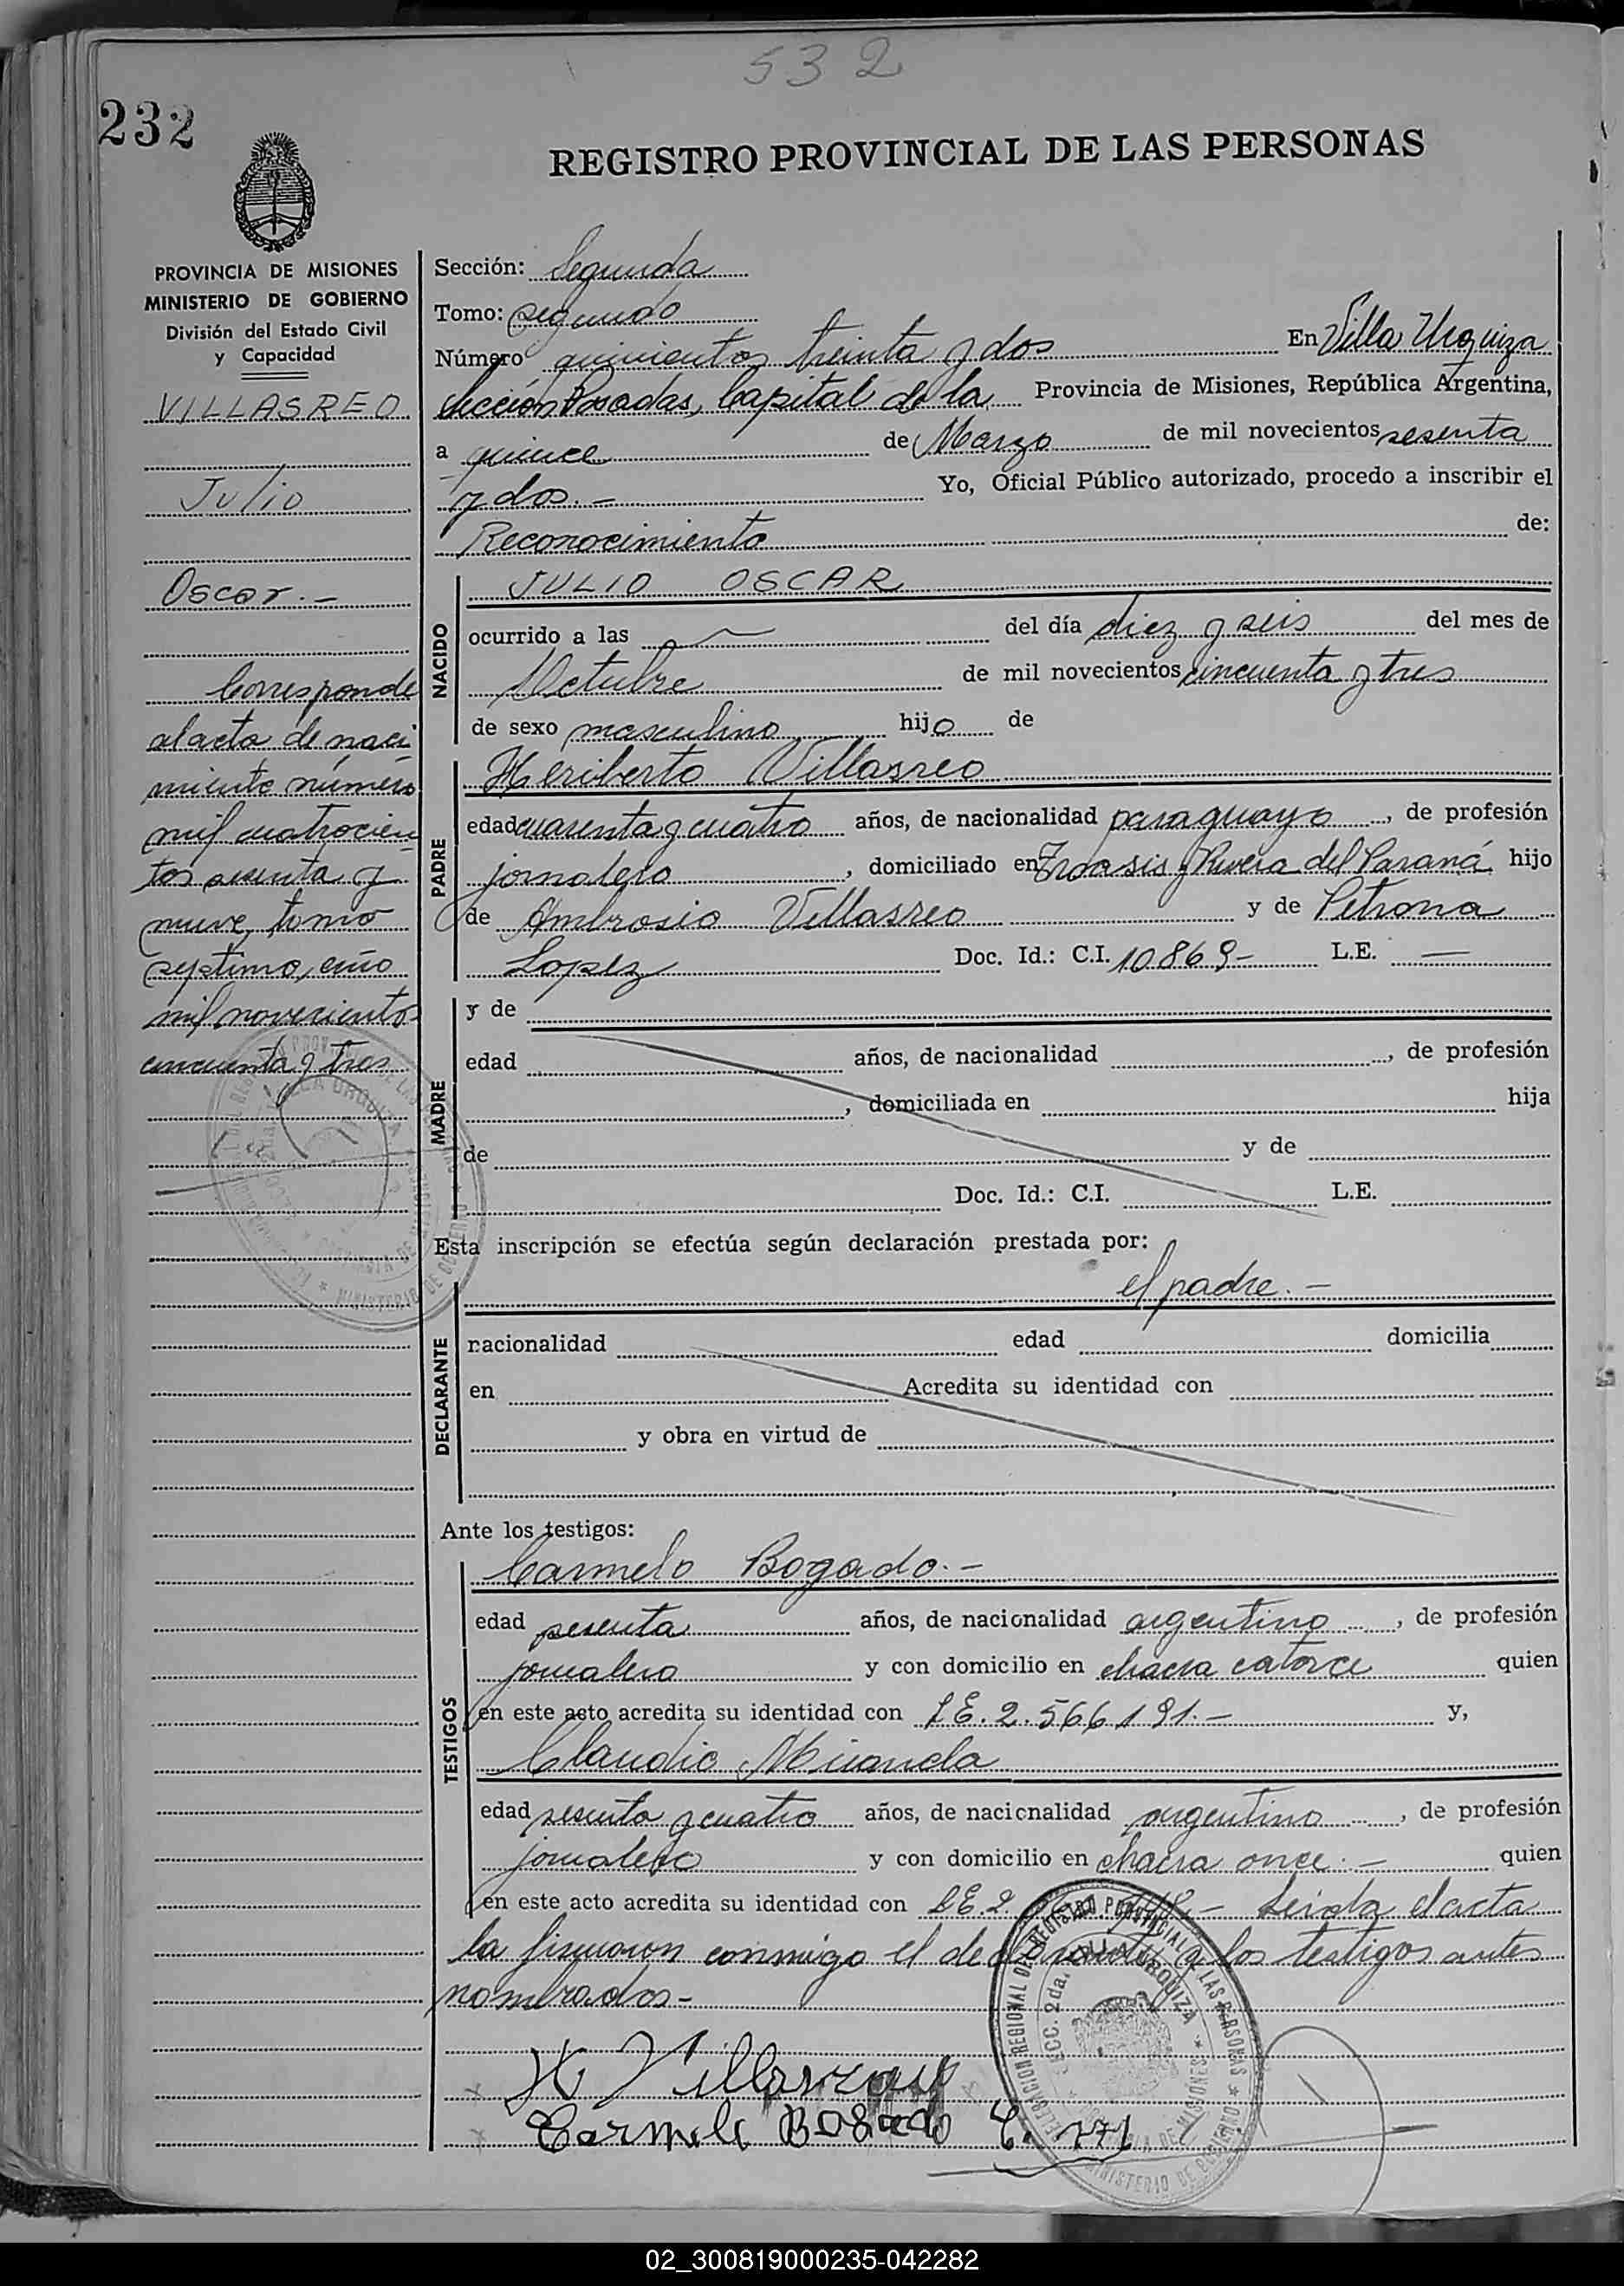 532
232
REGISTRO PROVINCIAL DE LAS PERSONAS
PROVINCIA DE MISIONES
MINISTERIO DE GOBIERNO
División del Estado Civil
y Capacidad
VILLASREO
Julio
Oscar.-
Corresponde
al acta de naci
miento número
mil cuatrocien
tos sesenta y
nueve, tomo
septimo, año
mil novecientos
cincuenta y tres
Sección: Segunda
Tomo: segundo
Número quinientos treinta y dos En Villa Urquiza
Sección Posadas, Capital de la Provincia de Misiones, República Argentina,
a quince de Marzo de mil novecientos sesenta
y dos.- Yo, Oficial Público autorizado, procedo a inscribir el
Reconocimiento de:
NACIDO
JULIO OSCAR
ocurrido a las del día diez y seis del mes de
Octubre de mil novecientos cincuenta y tres
de sexo masculino hijo de
PADRE
Heriberto Villasreo
edad cuarenta y cuatro años, de nacionalidad paraguayo, de profesión
jornalero, domiciliado en y Rivera del Paraná hijo
de Ambrosio Villasreo y de Petrona
Lopez Doc. Id.: C.I. 10869- L.E. —
MADRE
y de
edad años, de nacionalidad , de profesión
, domiciliada en hija
de y de
Doc. Id.: C.I. L.E.
Esta inscripción se efectúa según declaración prestada por:
el padre.-
DECLARANTE
nacionalidad edad domicilia
en Acredita su identidad con
y obra en virtud de
Ante los testigos:
TESTIGOS
Carmelo Bogado.-
edad sesenta años, de nacionalidad argentino, de profesión
jornalero y con domicilio en chacra catorce quien
en este acto acredita su identidad con LE. 2.566191.- y,
Claudio Miranda
edad sesenta y cuatro años, de nacionalidad argentino, de profesión
jornalero y con domicilio en chacra once.- quien
en este acto acredita su identidad con LE. 2 Leida el acta
la firmaron conmigo el declarante y los testigos antes
nombrados-
H Villasrreo
Carmelo Bogado
DELEGACION REGIONAL DEL REGISTRO PROVINCIAL DE LAS PERSONAS
SECC. 2da. VILLA URQUIZA
MINISTERIO DE GOBIERNO
02_300819000235-042282